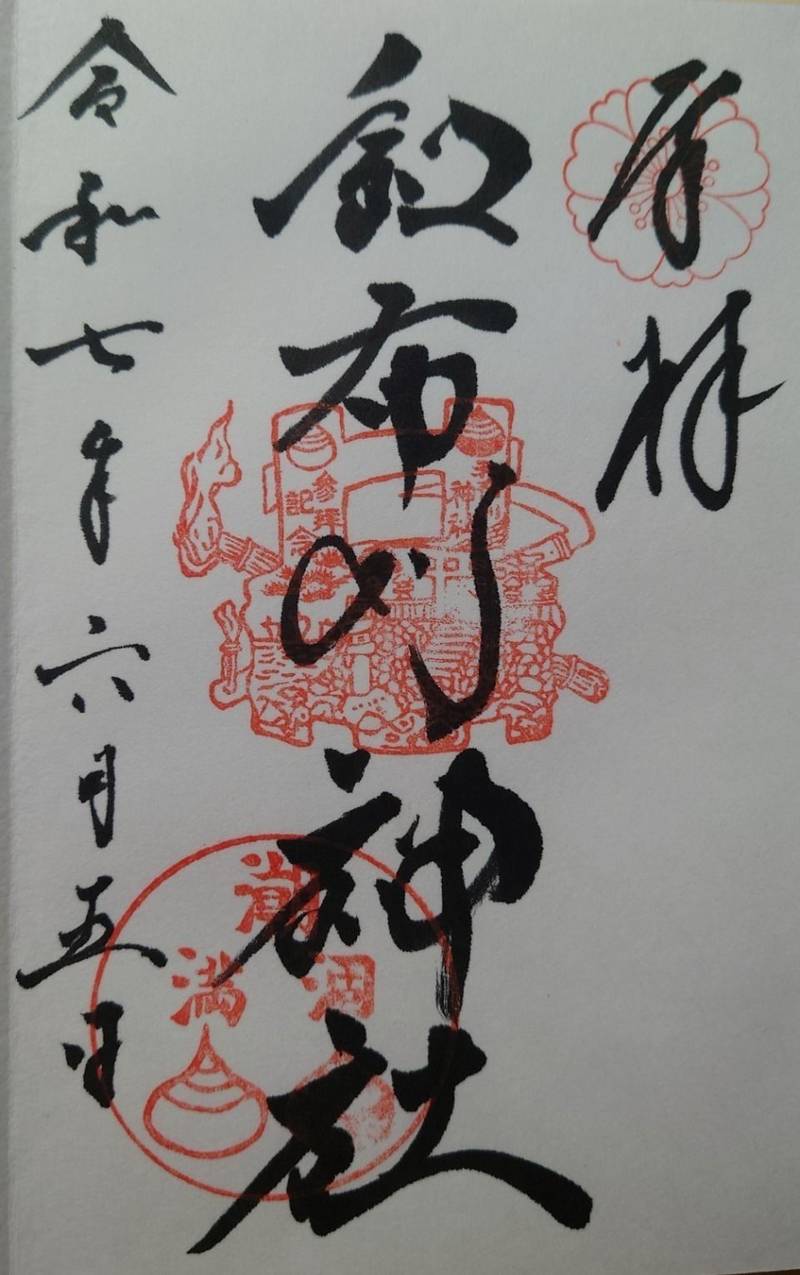 奉拝
和布刈神社
令和七年六月五日
参拝
記念
潮
満 涸